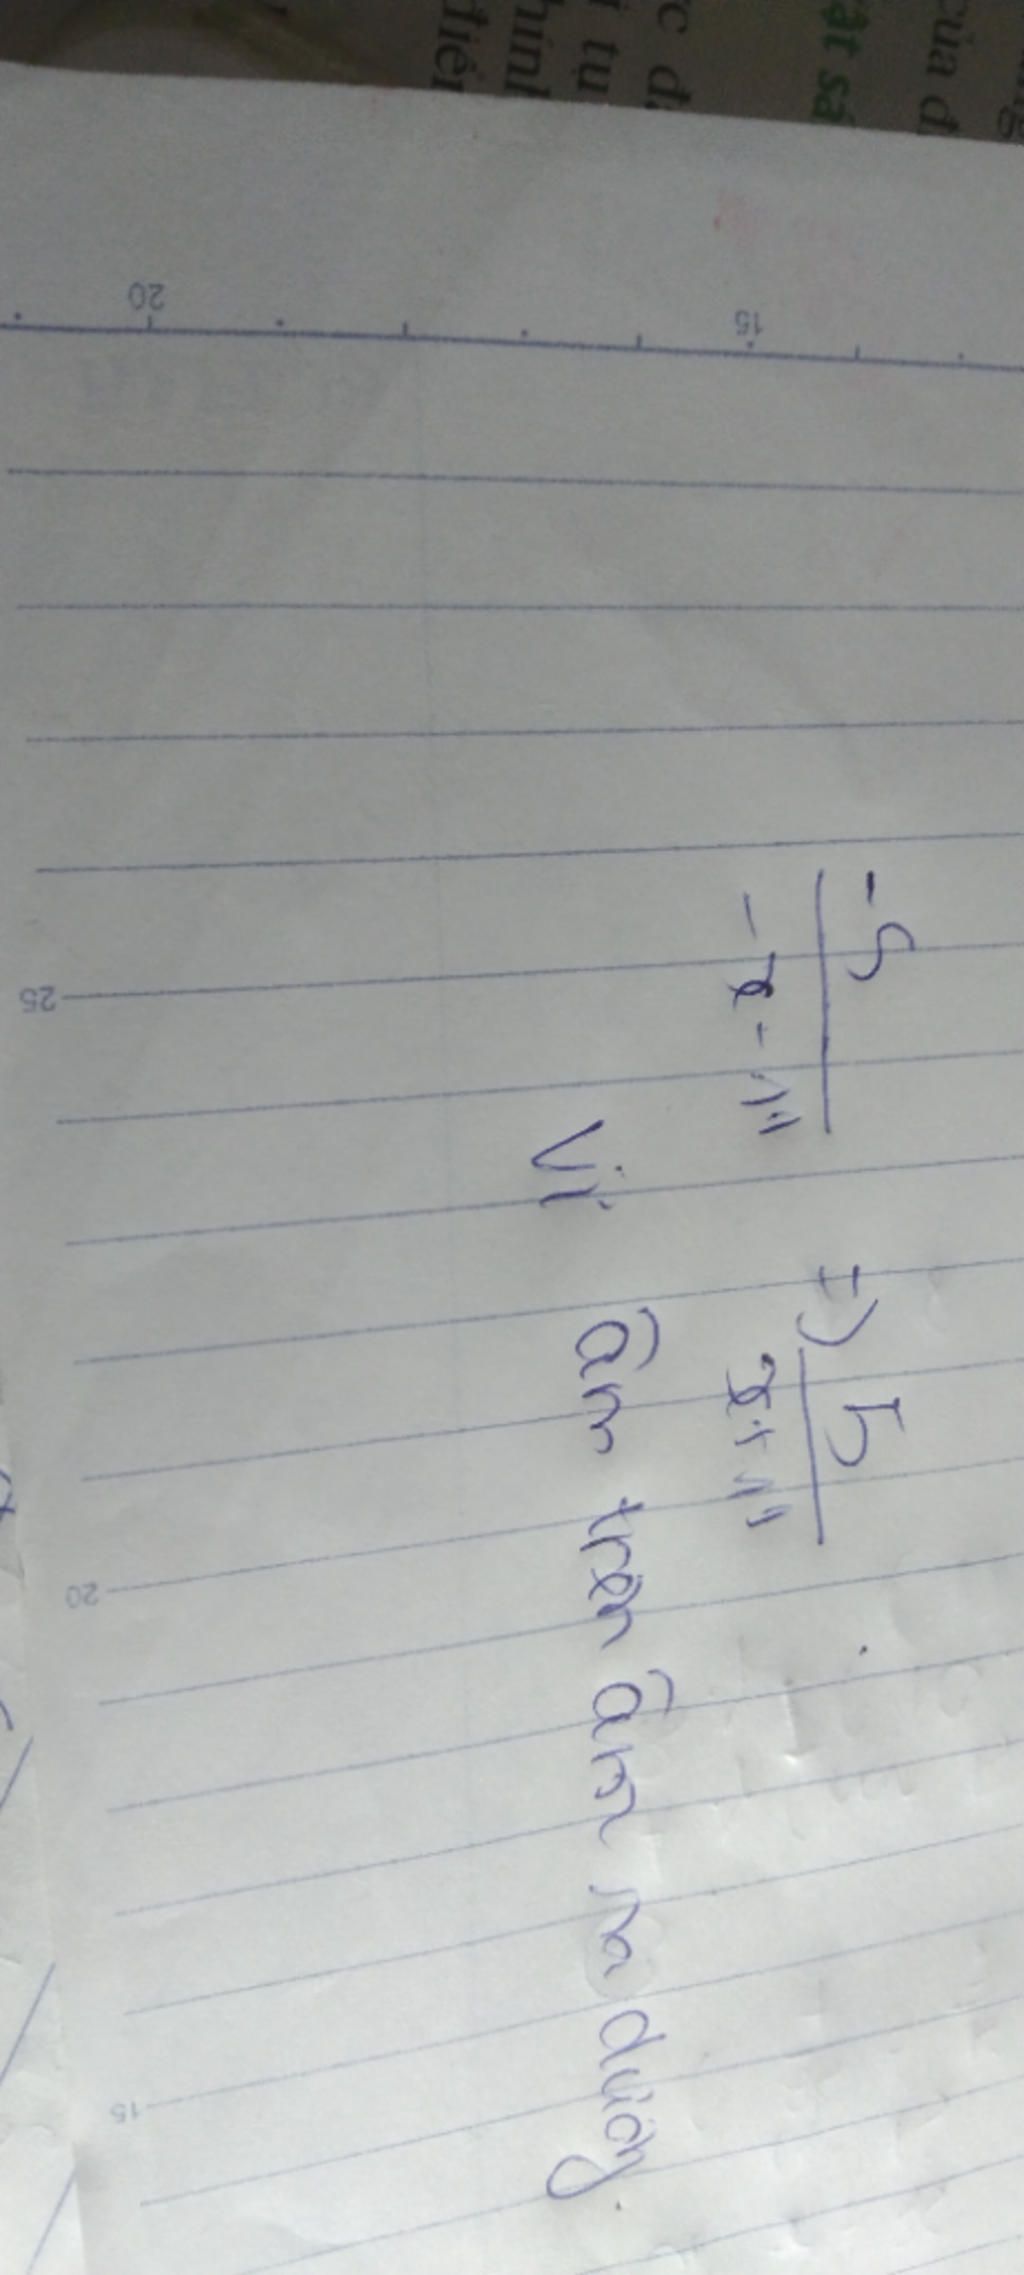 của đ
ật sá
c đ
i tụ
hình
điể
20
15
-5
-x - 11
=) 5
x + 11
Vì âm trên âm ra dương
25
20
15